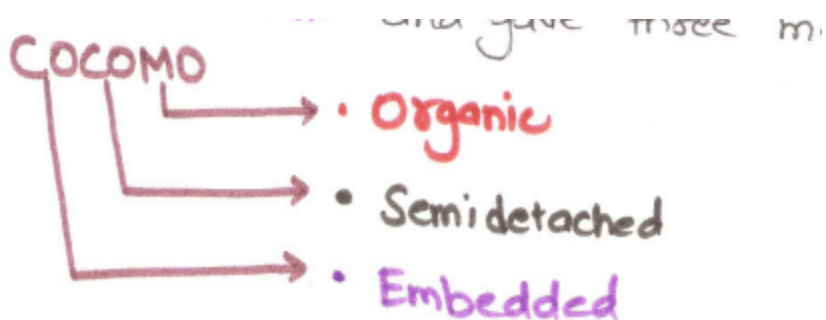 and gave three
COCOMO
• Organic
• Semidetached
• Embedded